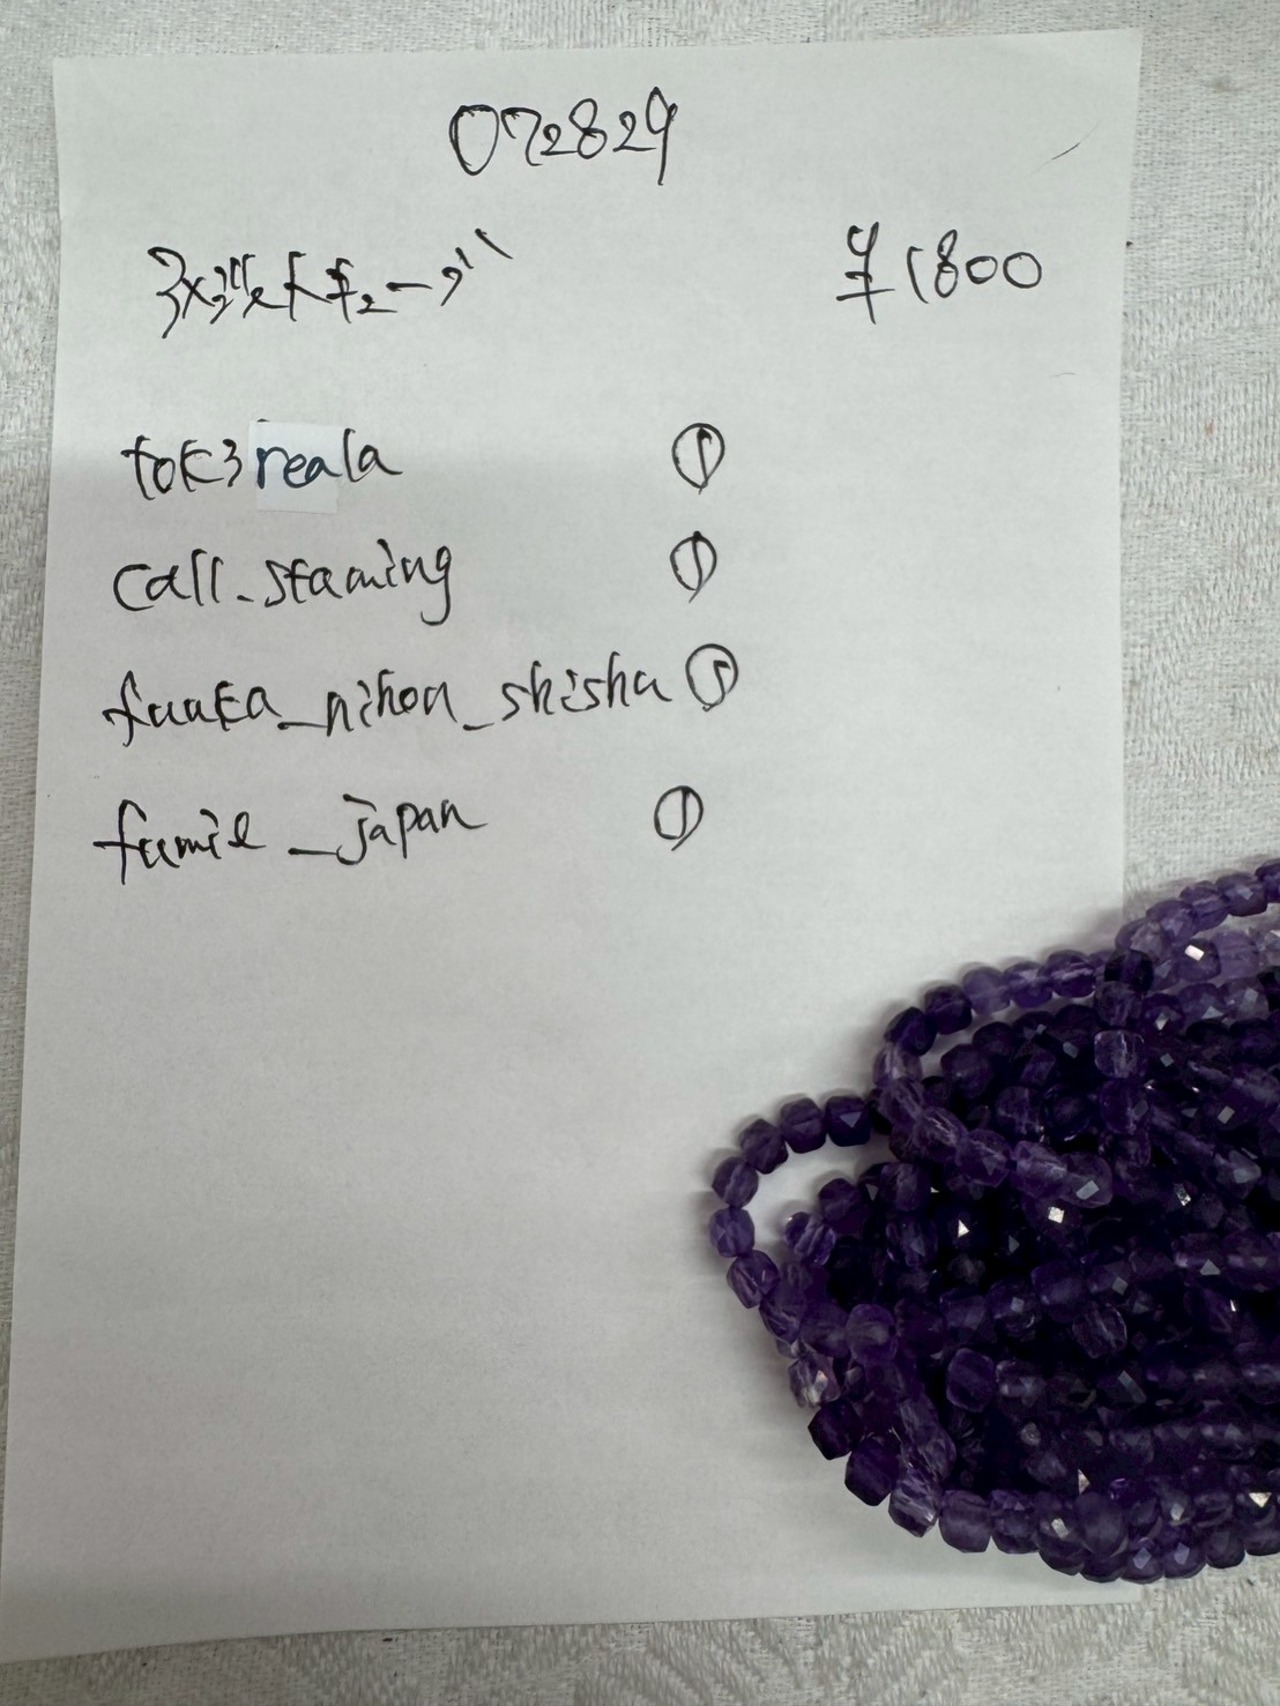 072829
¥1800
tok3reala ①
call_staming ①
fuuka_nihon_shisha ①
fumie_japan ①